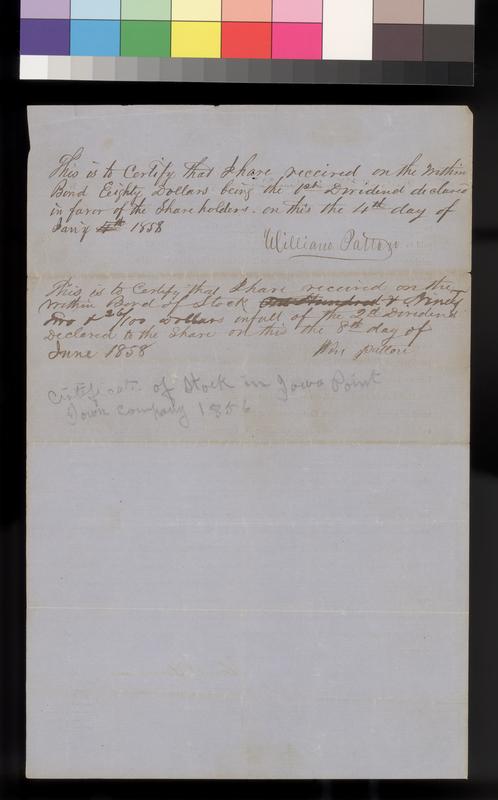 This is to Certify that I have received on the within
Bond Eeighty Dollars being the 1st Dividend declared
in favor of the Share holders. on this the 4th day of
Jan'y 4th 1858
William Patton
This is to Certify that I have received on the
within Bond of Stock One Hundred & Ninety
two & 26/100 Dollars infull of the 2d Dividend
Declared to the Share on this the 8th day of
June 1858 Wm Patton
Certificate of Stock in Iowa Point
Town Company 1856